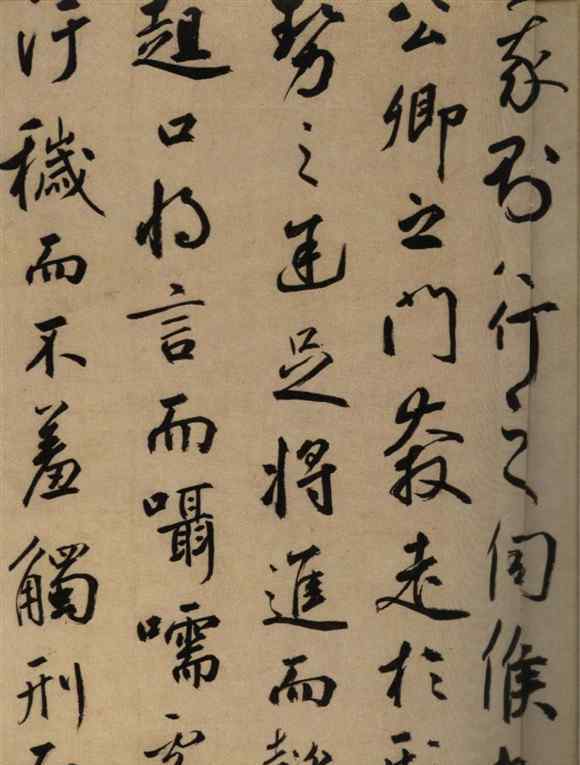 我則行之伺候
公卿之門奔走於形
勢之途足將進而
趄口將言而囁嚅
汙穢而不羞觸刑